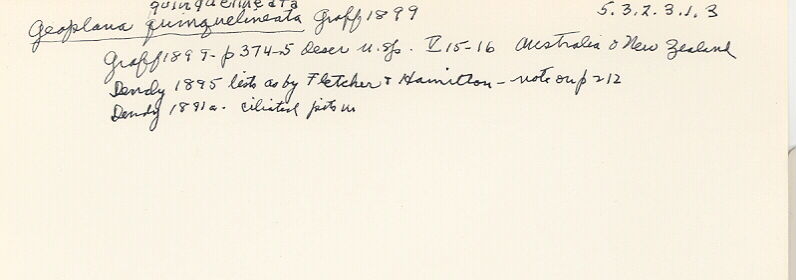 quinquelineata
Geoplana quinquelineata Graff 1899 5.3.2.3.1.3
Graff 1899 - p 374-5 Descr n.sp. V 15-16 Australia & New Zealand
Dendy 1895 lists as by Fletcher & Hamilton - note on p 212
Dendy 1891a. ciliated pits